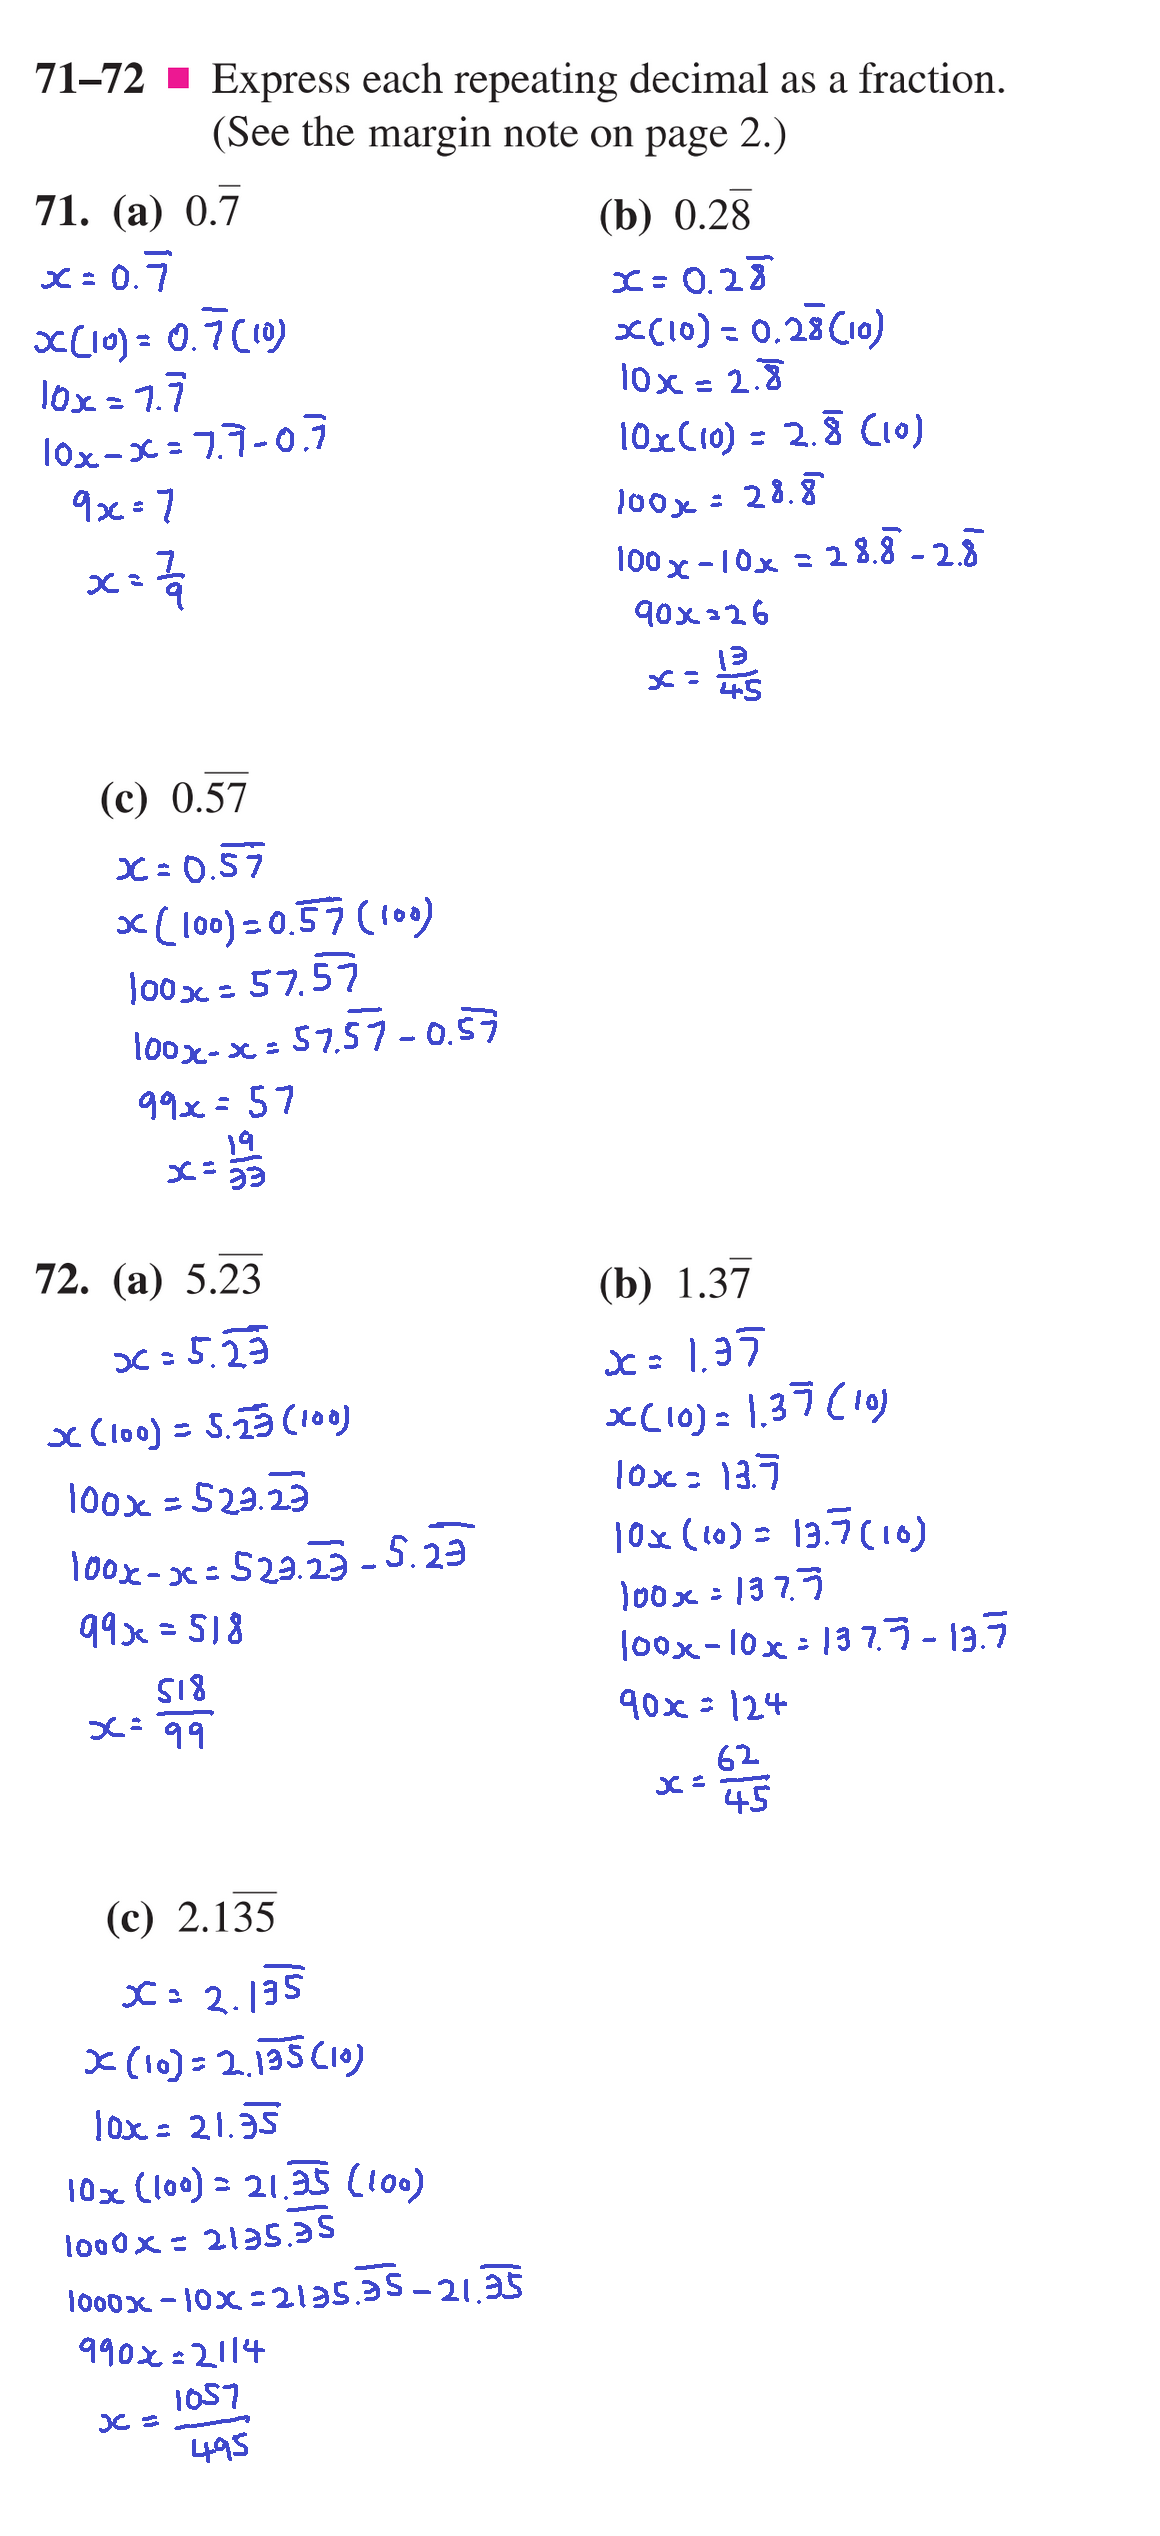 71–72 ■ Express each repeating decimal as a fraction.
(See the margin note on page 2.)
71. (a) 0.7̅
x = 0.7̅
x(10) = 0.7̅(10)
10x = 7.7̅
10x – x = 7.7̅ – 0.7̅
9x = 7
x = 7/9
(b) 0.28̅
x = 0.28̅
x(10) = 0.28̅(10)
10x = 2.8̅
10x(10) = 2.8̅ (10)
100x = 28.8̅
100x – 10x = 28.8̅ – 2.8̅
90x = 26
x = 13/45
(c) 0.5̅7̅
x = 0.5̅7̅
x(100) = 0.5̅7̅(100)
100x = 57.5̅7̅
100x – x = 57.5̅7̅ – 0.5̅7̅
99x = 57
x = 19/33
72. (a) 5.2̅3̅
x = 5.2̅3̅
x(100) = 5.2̅3̅(100)
100x = 523.2̅3̅
100x – x = 523.2̅3̅ – 5.2̅3̅
99x = 518
x = 518/99
(b) 1.37̅
x = 1.37̅
x(10) = 1.37̅(10)
10x = 13.7̅
10x(10) = 13.7̅(10)
100x = 137.7̅
100x – 10x = 137.7̅ – 13.7̅
90x = 124
x = 62/45
(c) 2.13̅5̅
x = 2.13̅5̅
x(10) = 2.1̅3̅5̅(10)
10x = 21.3̅5̅
10x(100) = 21.3̅5̅ (100)
1000x = 2135.3̅5̅
1000x – 10x = 2135.3̅5̅ – 21.3̅5̅
990x = 2114
x = 1057/495